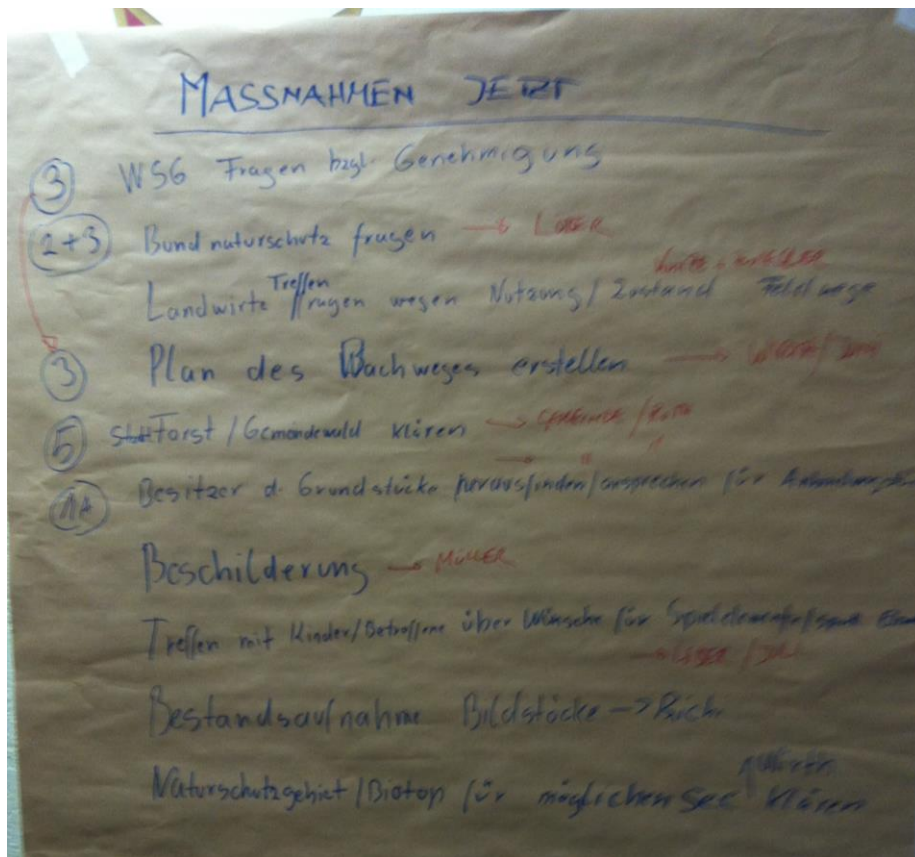 MASSNAHMEN JETZT
3 WSG Fragen bzgl. Genehmigung
2+3 Bund naturschutz fragen → LOSER
Treffen
Landwirte fragen wegen Nutzung / Zustand Feldwege
3 Plan des Bachweges erstellen →
5 Forst / Gemeindewald klären → /
1A Besitzer d. Grundstücke herausfinden / ansprechen für
Beschilderung → MÜLLER
Treffen mit Kinder/Betroffene über Wünsche für Spielelemente /
Bestandsaufnahme Bildstöcke →
Naturschutzgebiet / Biotop für möglichen See klären